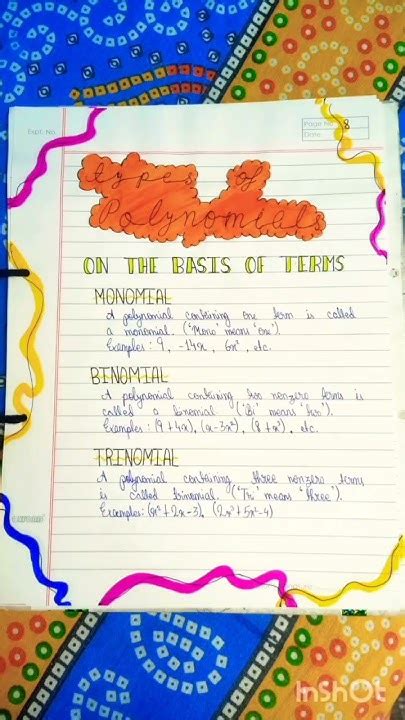 Expt. No.
Page No. 8
Date
types of
Polynomials
ON THE BASIS OF TERMS
MONOMIAL
A polynomial containing one term is called
a monomial. ('Mono' means 'one').
Examples: 9, -14x, 6x², etc.
BINOMIAL
A polynomial containing two nonzero terms is
called a binomial ('Bi' means 'two').
Examples: (9+4x), (x-3x²), (8+x³), etc.
TRINOMIAL
A polynomial containing three nonzero terms
is called trinomial. ('Tri' means 'three').
Examples: (x²+2x-3), (2x³+5x²-4)
InShOt